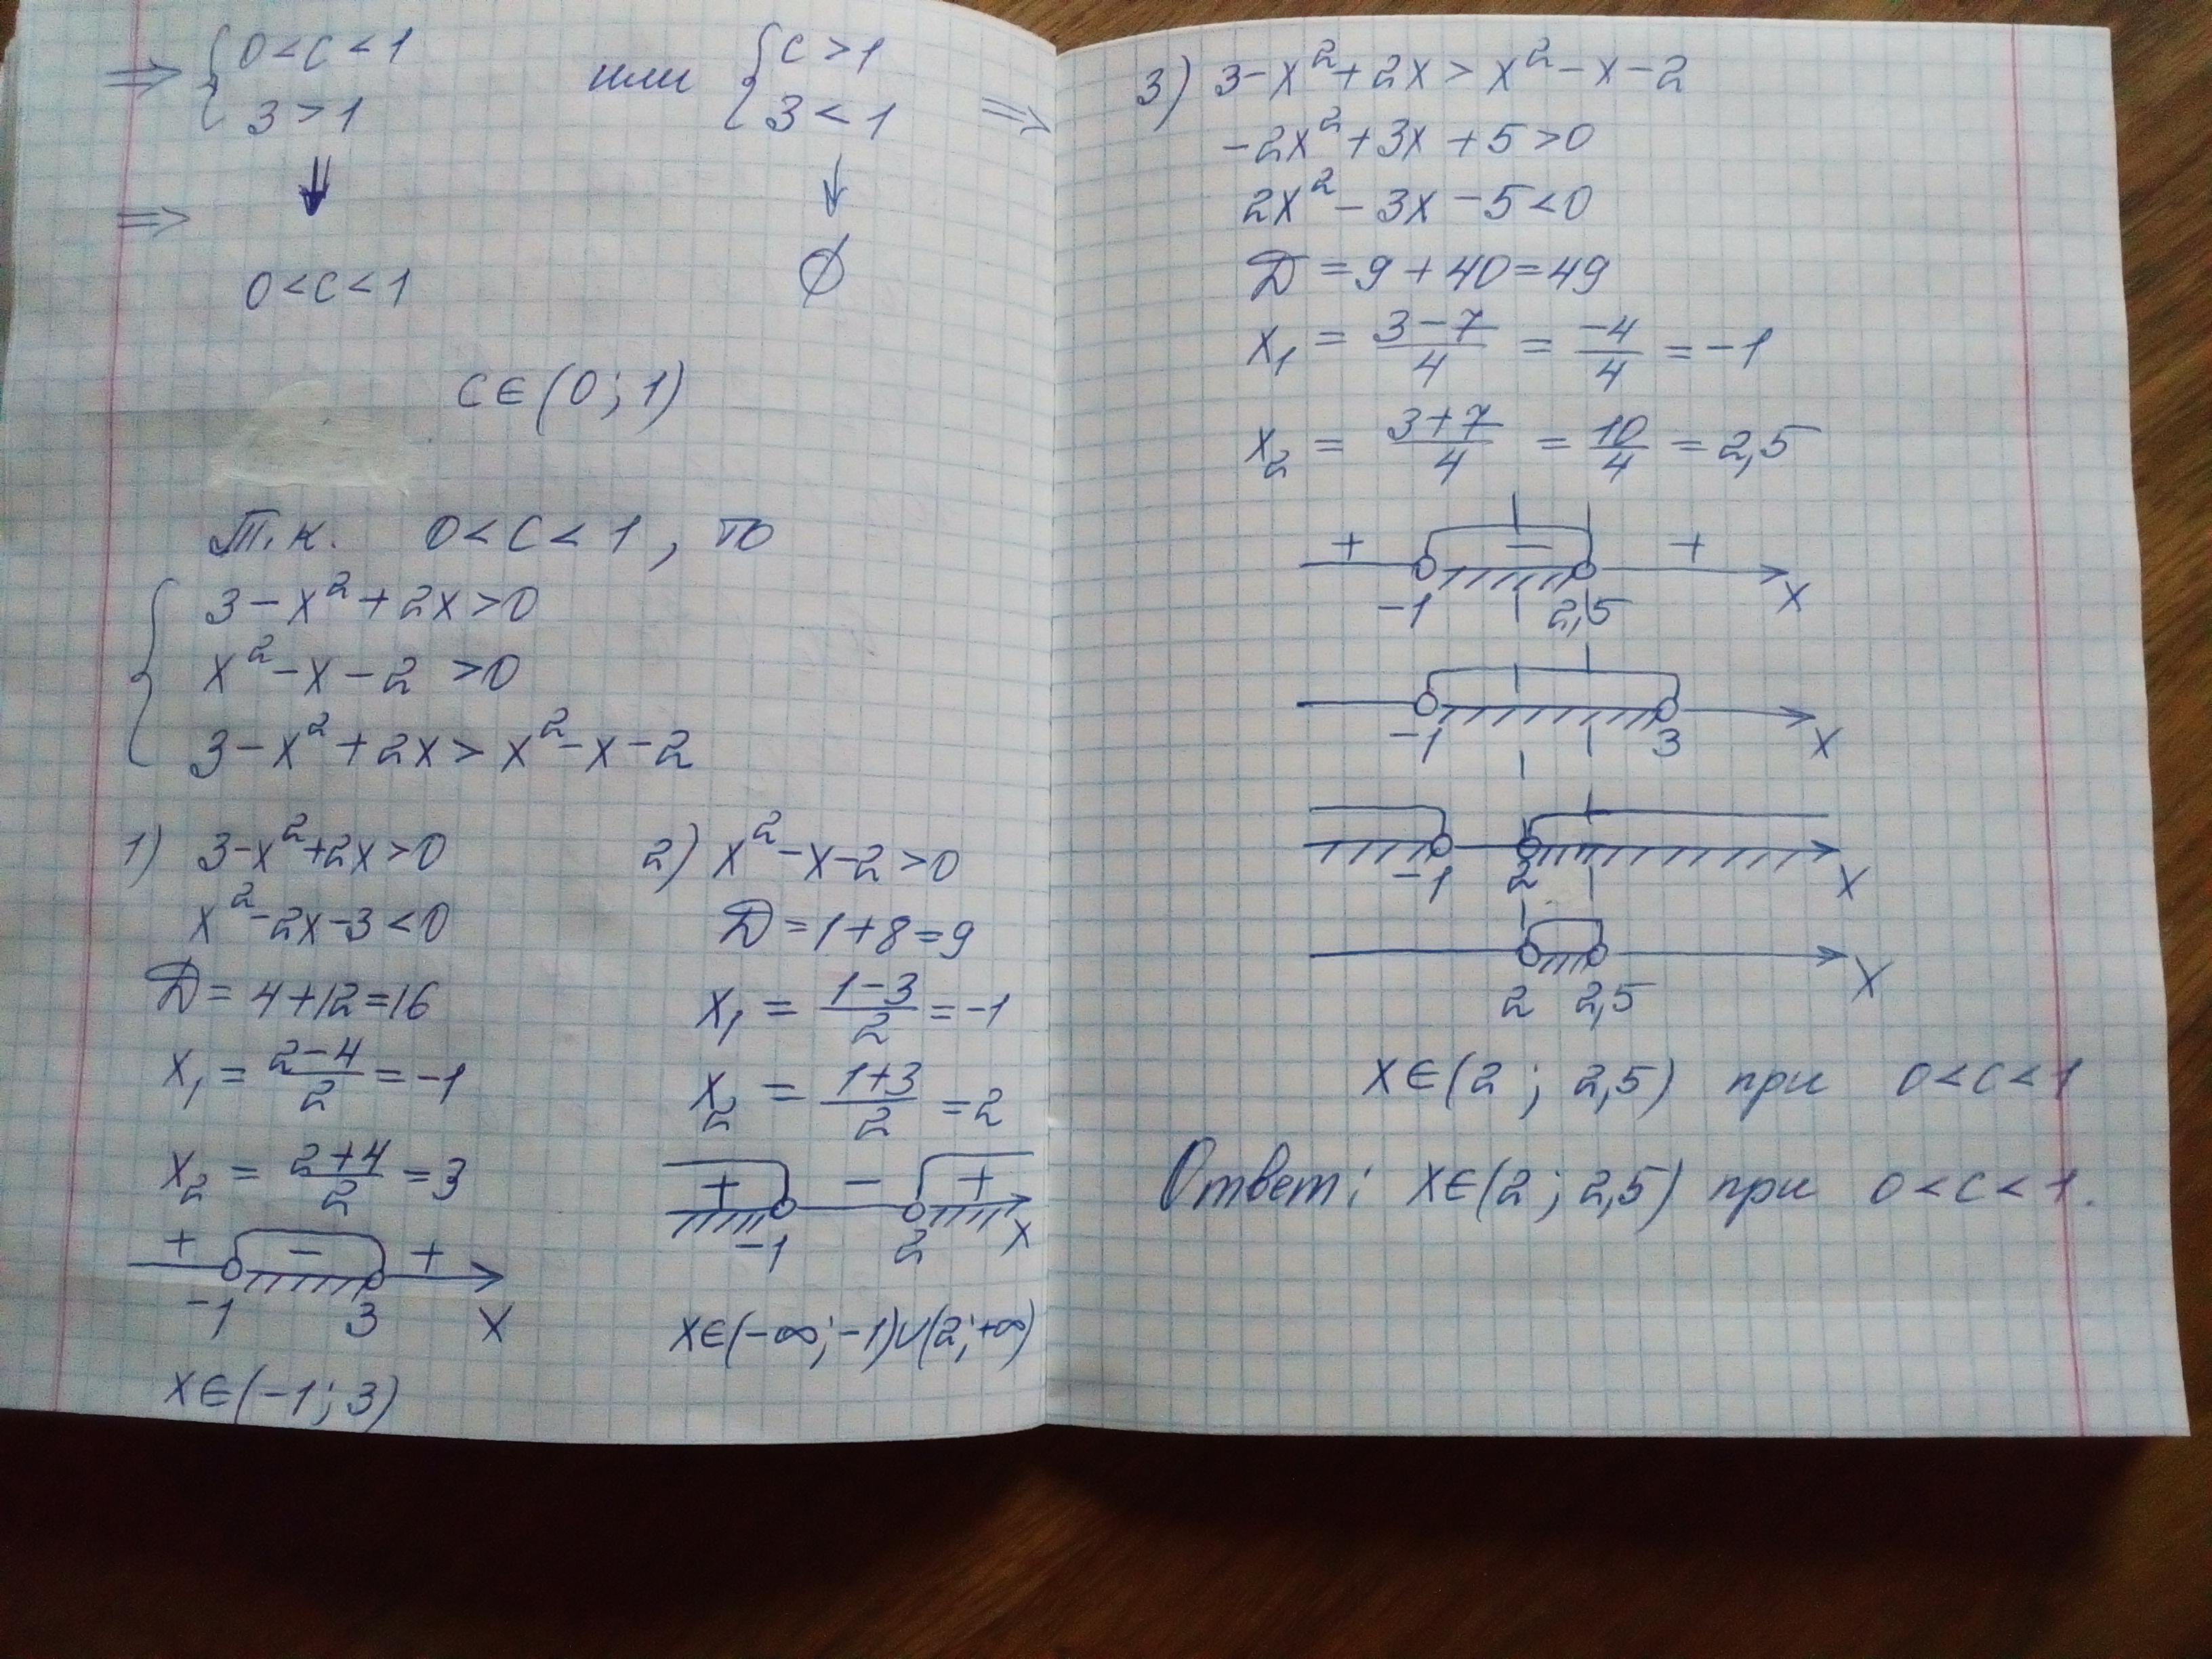 ⇒ { 0<c<1 или { c>1
3>1 3<1 ⇒
⇒ ⇓ ↓
0<c<1 ∅
c∈(0;1)
Т.к. 0<c<1, то
{ 3-x²+2x>0
x²-x-2>0
3-x²+2x>x²-x-2
1) 3-x²+2x>0
x²-2x-3<0
D=4+12=16
x₁=(2-4)/2=-1
x₂=(2+4)/2=3
+ - +
-1 3 x
x∈(-1;3)
2) x²-x-2>0
D=1+8=9
x₁=(1-3)/2=-1
x₂=(1+3)/2=2
+ - +
-1 2 x
x∈(-∞;-1)∪(2;+∞)
3) 3-x²+2x>x²-x-2
-2x²+3x+5>0
2x²-3x-5<0
D=9+40=49
x₁=(3-7)/4=-4/4=-1
x₂=(3+7)/4=10/4=2,5
+ - +
-1 2,5 x
-1 3 x
-1 2 x
2 2,5 x
x∈(2; 2,5) при 0<c<1
Ответ: x∈(2; 2,5) при 0<c<1.